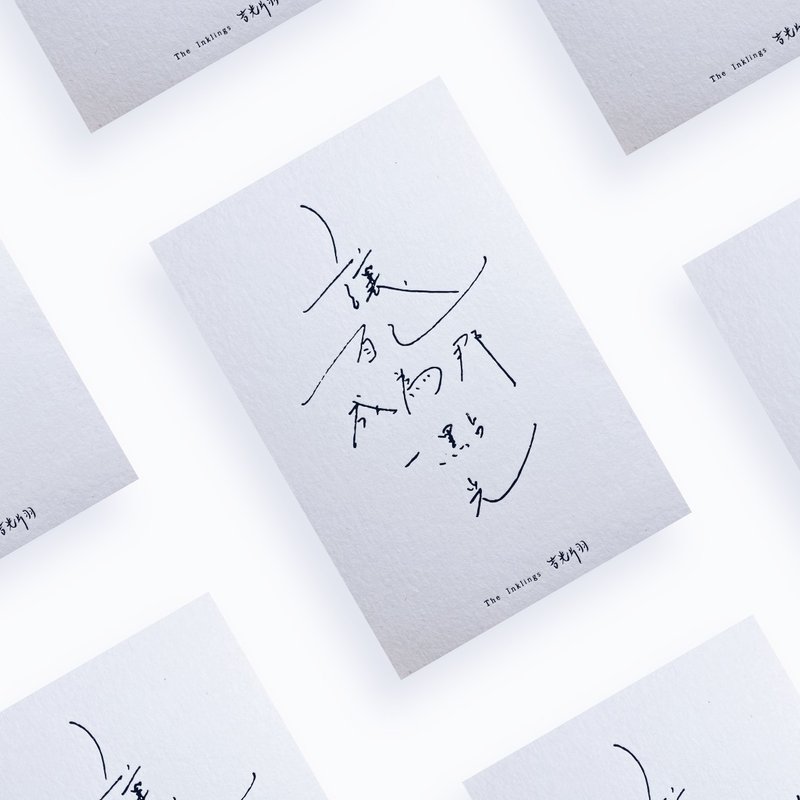 The Inklings 吉光片羽
The Inklings 吉光片羽
讓
自己
成為那
一點
光
The Inklings 吉光片羽
吉光片羽
讓